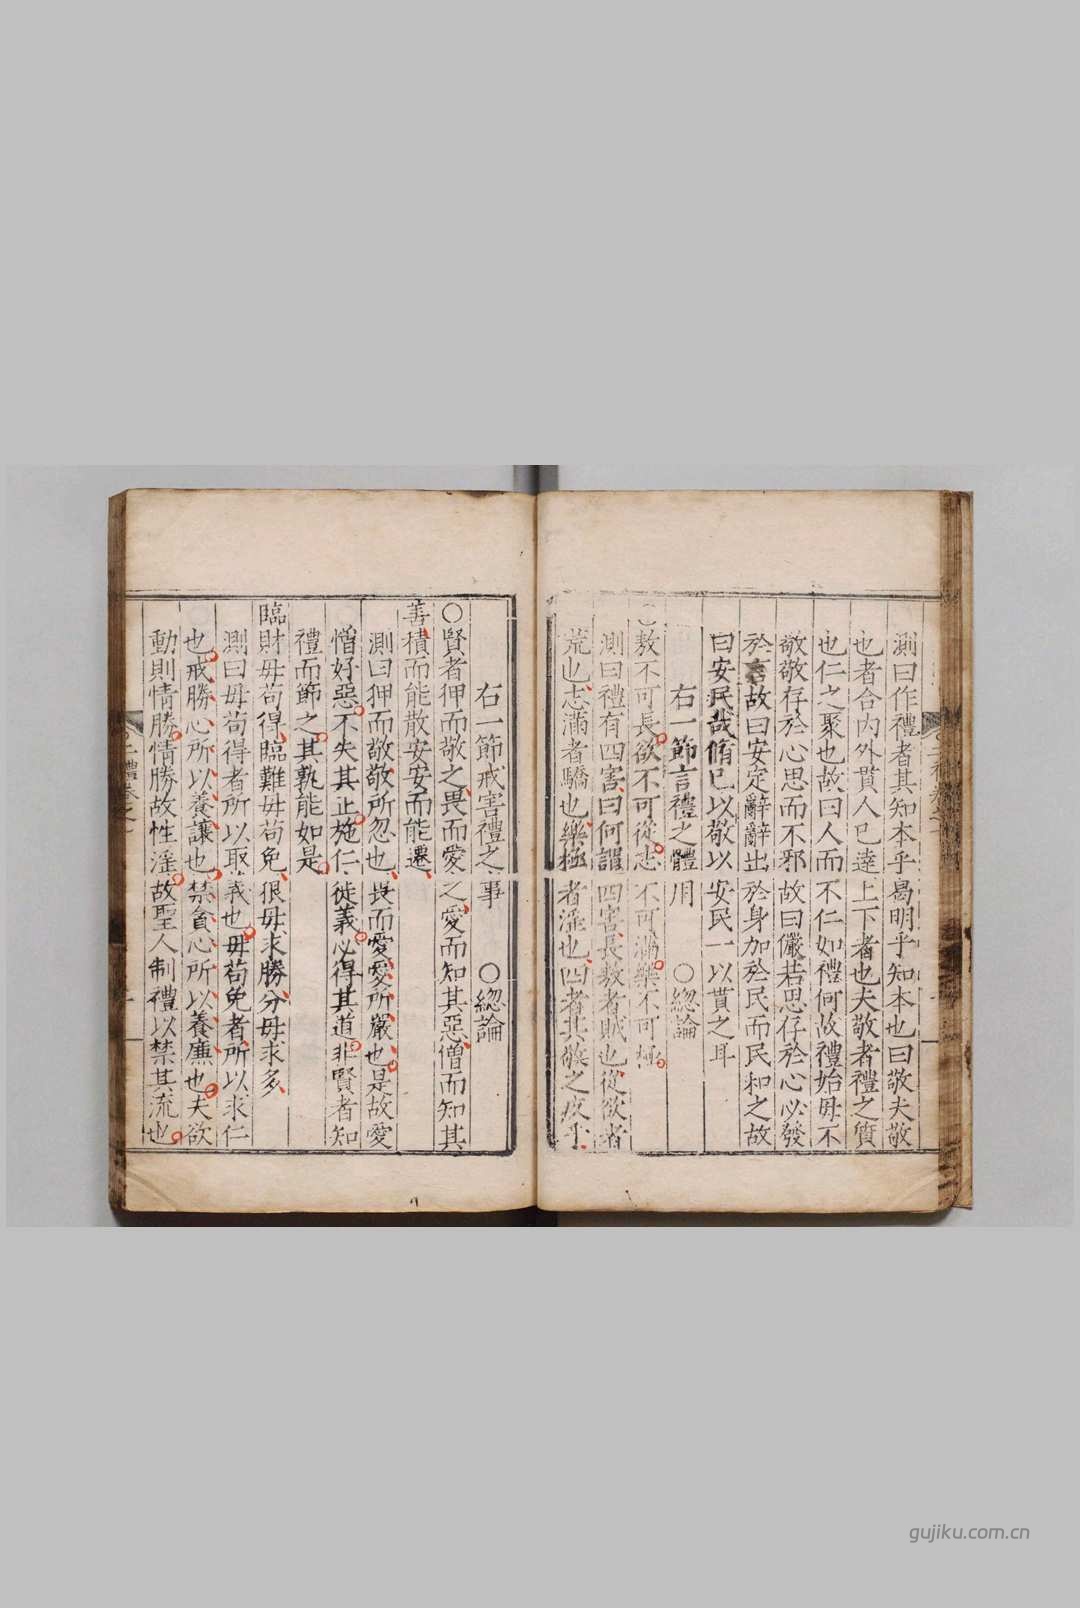 測曰作禮者其知本乎曷明乎知本也曰敬夫敬
也者合内外貫人已達上下者也夫敬者禮之質
也仁之聚也故曰人而不仁如禮何故禮始毋不
敬敬存於心思而不邪故曰儼若思存於心必發
於言故曰安定辭辭出於身加於民而民和之故
曰安民哉脩已以敬以安民一以貫之耳
右一節言禮之體用 ○總論
○敖不可長欲不可從志不可滿樂不可極
測曰禮有四害曰何謂四害長敖者賊也從欲者
荒也志滿者驕也樂極者淫也四者其敬之疚乎
右一節戒害禮之事 ○總論
○賢者狎而敬之畏而愛之愛而知其惡憎而知其
善積而能散安安而能遷
測曰狎而敬敬所忽也畏而愛愛所嚴也是故愛
憎好惡不失其正施仁徙義必得其道非賢者知
禮而節之其孰能如是
臨財毋苟得臨難毋苟免狠毋求勝分毋求多
測曰毋苟得者所以取義也毋苟免者所以求仁
也戒勝心所以養讓也禁貪心所以養廉也夫欲
動則情勝情勝故性淫故聖人制禮以禁其流也
二禮卷之一
gujiku.com.cn